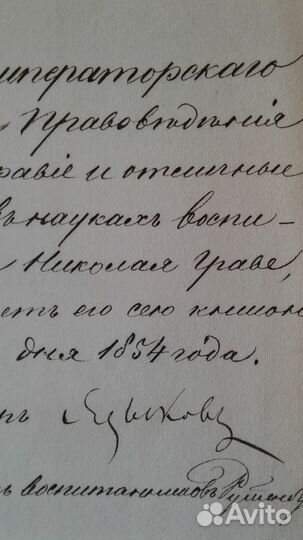 императорскаго
Правовѣдѣнія
равіе и отличные
въ наукахъ воспи-
Николая Граве,
етъ его сею книгою
дня 1854 года.
нъ Языковъ
ъ воспитанниковъ
Avito